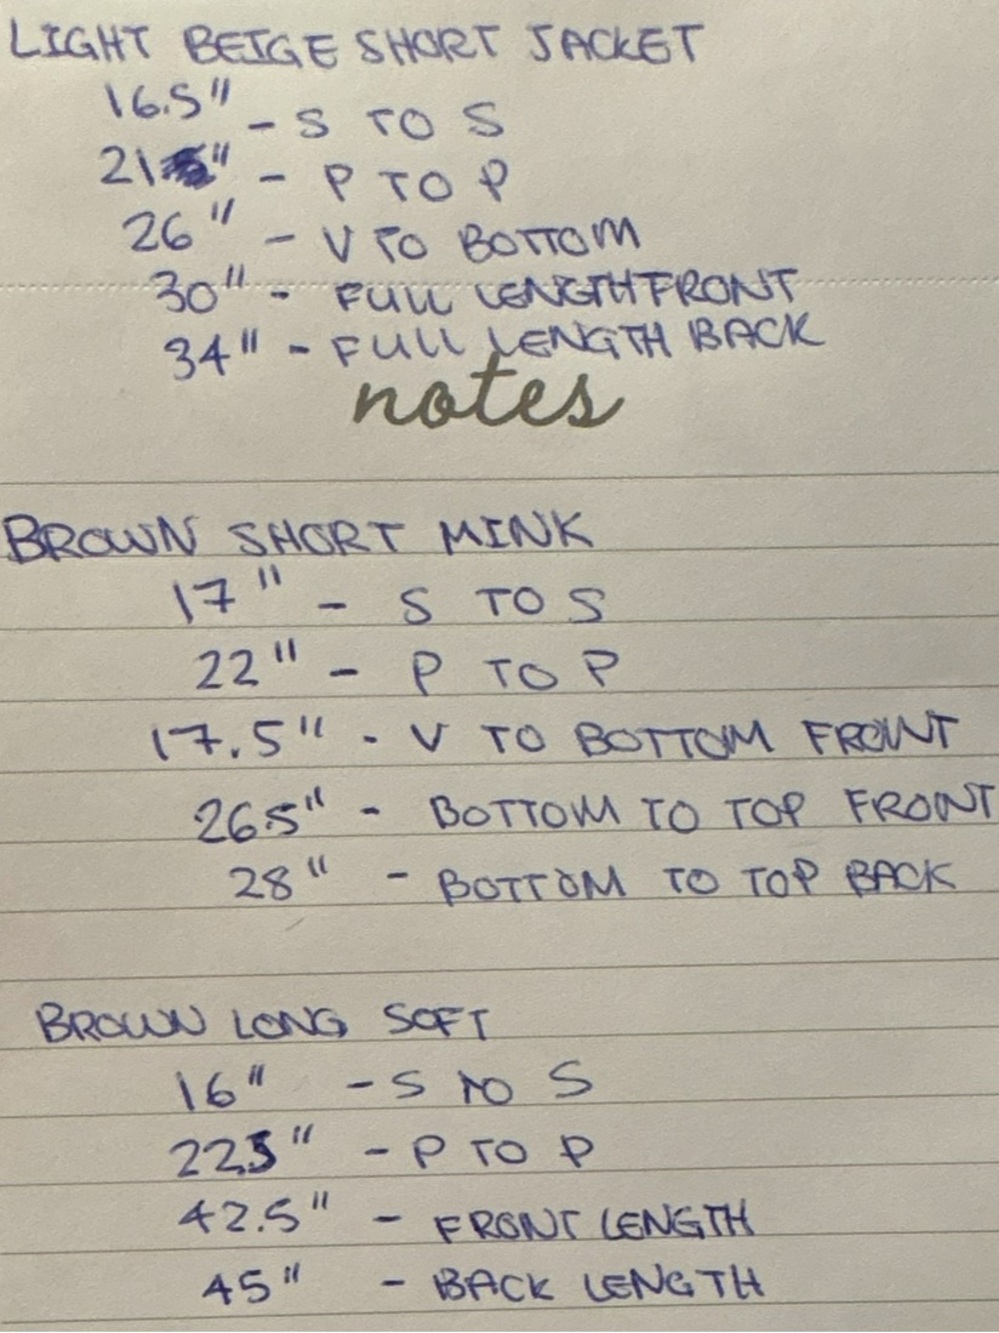 LIGHT BEIGE SHORT JACKET
16.5" - S TO S
21" - P TO P
26" - V TO BOTTOM
30" - FULL LENGTH FRONT
34" - FULL LENGTH BACK
notes
BROWN SHORT MINK
17" - S TO S
22" - P TO P
17.5" - V TO BOTTOM FRONT
26.5" - BOTTOM TO TOP FRONT
28" - BOTTOM TO TOP BACK
BROWN LONG SOFT
16" - S TO S
22.5" - P TO P
42.5" - FRONT LENGTH
45" - BACK LENGTH